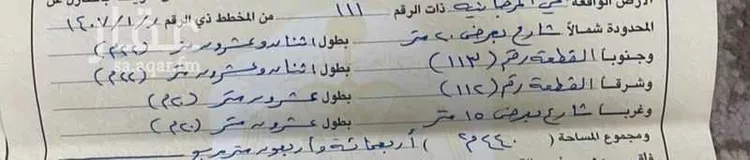 الأرض الواقعة في المرجانية ذات الرقم ١١١ من المخطط ذي الرقم ١٤٠٧/١/١
المحدودة شمالاً شارع بعرض ٢٠ متر بطول اثنان وعشرون متر (٢٢م)
وجنوباً القطعة رقم (١١٣) بطول اثنان وعشرون متر (٢٢م)
وشرقاً القطعة رقم (١١٢) بطول عشرون متر (٢٠م)
وغرباً شارع بعرض ١٥ متر بطول عشرون متر (٢٠م)
ومجموع المساحة (٤٤٠م٢) أربعمائة وأربعون متر مربع
عقار
sa.aqar.fm